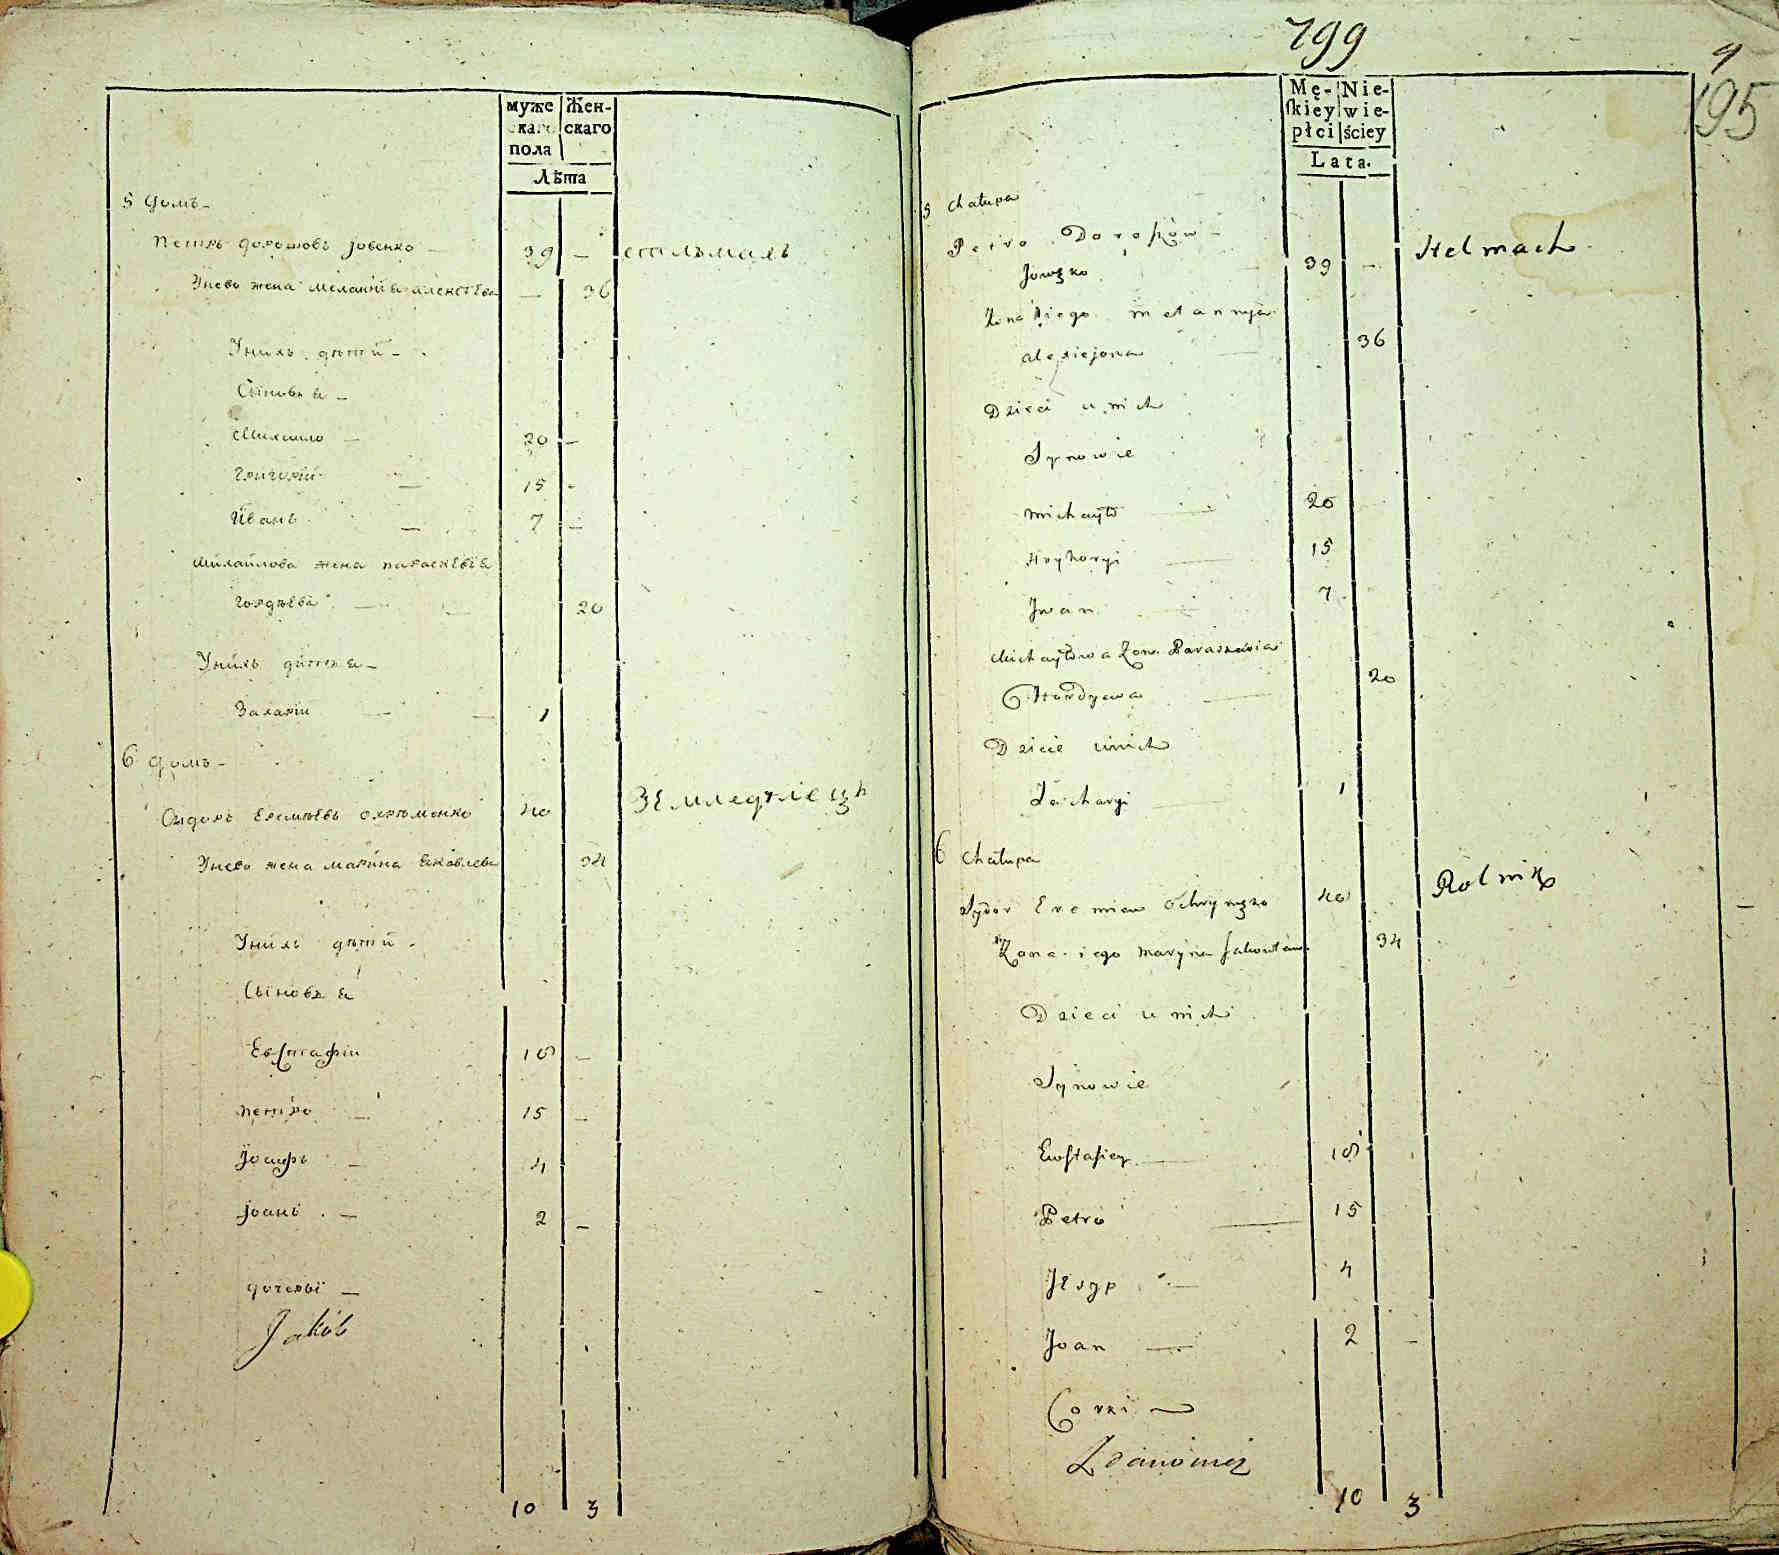 муже Жен-
скаго скаго
пола
Лѣта
5 домъ
Петръ дорошовъ Јовенко 39 — стельмахъ
Унево жена меланиїя алексѣева — 36
Унихъ дѣтей
Сыновья
Михаило 20 —
Григорий 15 -
Иванъ 7 —
Михаилова жена параскевія
гордѣева 20
Унихъ дитя
Захарій 1
6 домъ
Сидоръ Еремѣевъ охрѣменко 40 Земледѣлецъ
Унево жена марина яковлева 34
Унихъ дѣтей
Сыновья
Евстафій 18 —
петро 15 —
Јосифъ 4
Јоанъ 2 —
дочеры
Jakób
10 3
799
9
195
Mę- Nie-
skiey wie-
płci ściey
Lata.
5 Chałupa
Petro Doroszów
39 — Stelmach
Żona iego Melannija
36
Dzieci u nich
Synowie
Michayło 20
Hryhoryi 15
Jwan 7
Michayłowa Żona Paraskewia
Hordyewa 20
Dzicie u nich
Zacharyi 1
6 Chałupa
Sydor Eremiew Ochrymęko 40 Rolnik
Żona iego Maryna Jakowlewa 34
Dzieci u nich
Synowie
Ewstafiey 18
Petro 15
Jesyp 4
Joan 2 —
Corki
10 3